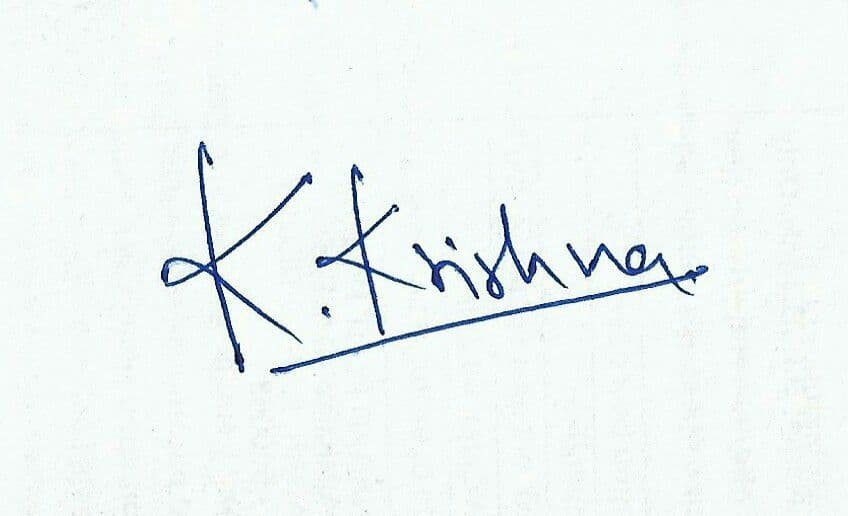 K. Krishna